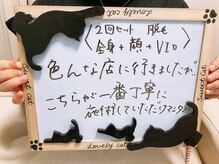 Lovely cat
2回セット 脱毛
〈全身+顔+VIO〉
色んな店に行きましたが、
こちらが一番丁寧に
施術していただけます!!
Sweet cat
Lovely cat